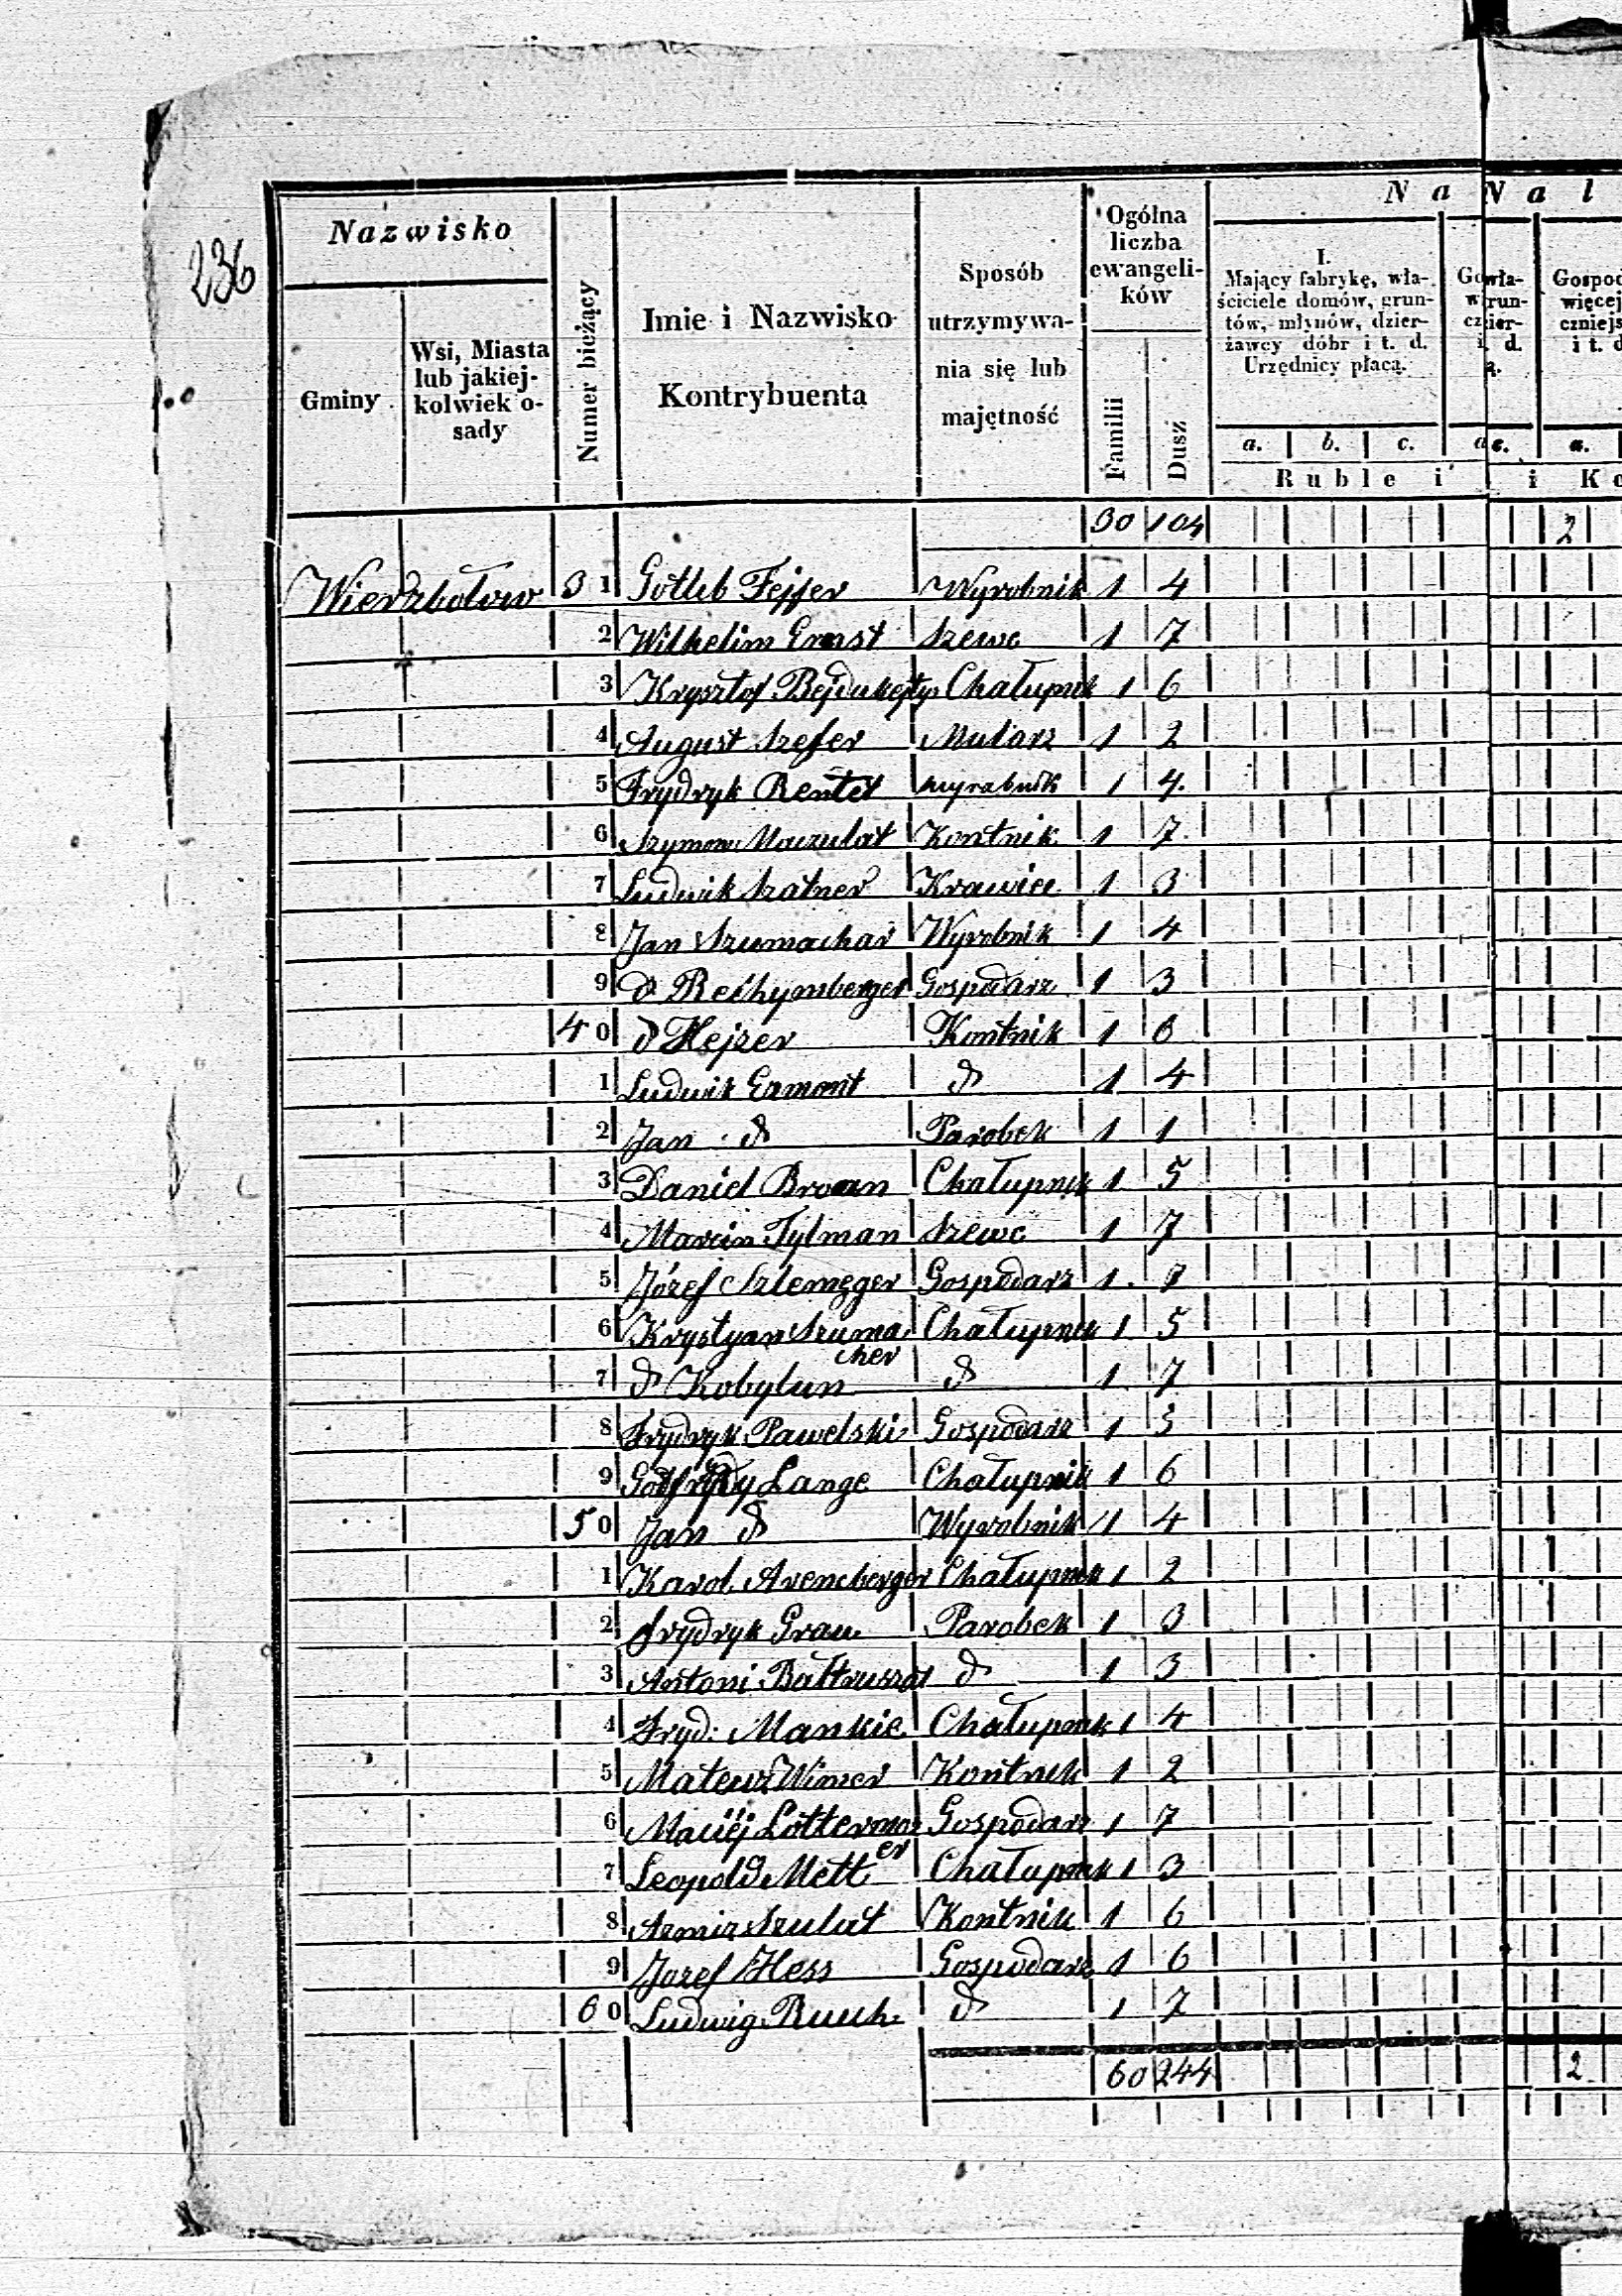 236
Nazwisko
Gminy
Wsi, Miasta lub jakiej-kolwiek o-sady
Numer bieżący
Imie i Nazwisko Kontrybuenta
Sposób utrzymywa-nia się lub majętność
Ogólna liczba ewangeli-ków
Familii
Dusz
Na Nal
I. Mający fabrykę, wła-ściciele domów, grun-tów, młynów, dzier-żawcy dóbr i t. d. Urzędnicy płacą.
a. b. c.
a.
Ruble i i Ko
30 104 2
Wierzbołow 31 Gotlib Fejfer Wyrobnik 1 4
2 Wilhelim Ernst Szewc 1 7
3 Krysztof Chałupnik 1 6
4 August Szefer Mularz 1 2
5 Frydryk Rentel wyrabnik 1 4.
6 Szymon Maczulat Kontnik 1 7.
7 Ludwik Szatner Krawiec 1 3
8 Jan Szumachar Wyrobnik 1 4
9 d Rechymberger Gospodarz 1 3
40 d Hejzer Kontnik 1 6
1 Ludwik Ermont d 1 4
2 Jan d Parobek 1 1
3 Daniel Chałupnik 1 5
4 Marcin Tylman Szewc 1 7
5 Józef Szlemęger Gospodarz 1 7
6 Krystyan Szuma Chałupnik 1 5
cher
7 d Kobylun d 1 7
8 Frydryk Pawelski Gospodarz 1 5
9 Lange Chałupnik 1 6
50 Jan d Wyrobnik 1 4
1 Karol Arencberger Chałupnik 1 2
2 Frydryk Grau Parobek 1 3
3 Antoni Bałtruszat d 1 3
4 Fryd: Mankie Chałupnik 1 4
5 Mateusz Wimer Kontnik 1 2
6 Maciéj Lottermoz Gospodarz 1 7
er
7 Leopold Mett Chałupnik 1 3
8 Kontnik 1 6
9 Jozef Hess Gospodarz 1 6
60 Ludwig Ruuch d 1 7
60 244 2